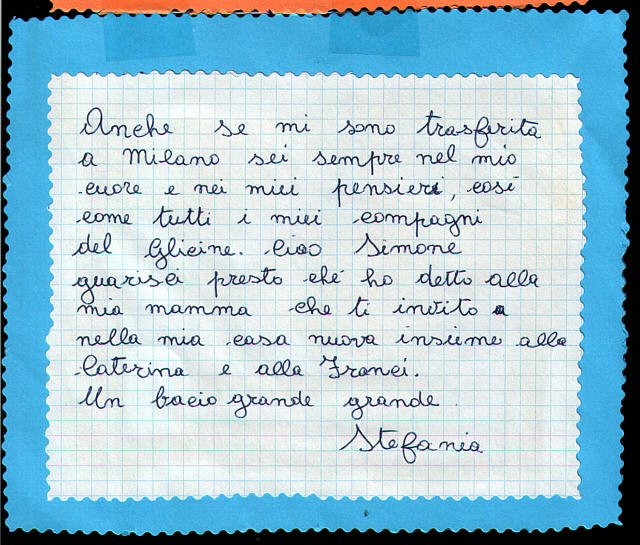 Anche se mi sono trasferita
a Milano sei sempre nel mio
cuore e nei miei pensieri, così
come tutti i miei compagni
del Glicine. Ciao Simone
guarisci presto ché ho detto alla
mia mamma che ti invito a
nella mia casa nuova insieme alla
Caterina e alla Franci.
Un bacio grande grande
Stefania